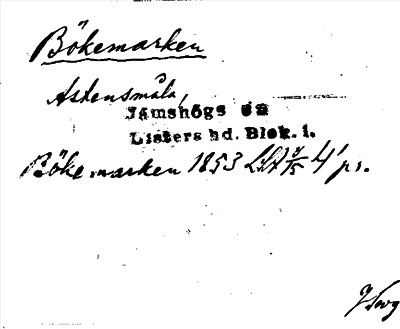 Bökemarken
Astensmåla,
Jämshögs sn
Listers hd. Blek. l.
Bökemarken 1853 4 pr.